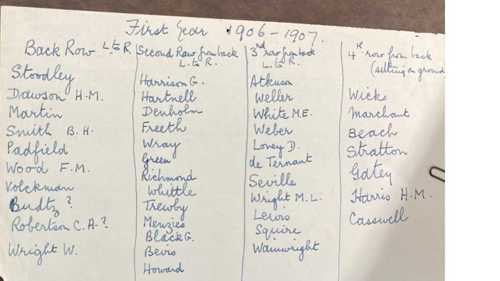 First Year 1906-1907.
Back Row L. to R.
Stoodley
Dawson H.M.
Martin
Smith B.H.
Padfield
Wood F.M.
Volckman
Budtz ?
Robertson C.A. ?
Wright W.
Second Row from back
L. to R.
Harrison G.
Hartnell
Denholm
Freeth
Wray
Green
Richmond
Whittle
Trewby
Menzies
Black G.
Bevis
Howard
3rd row from back
L. to R.
Atkuson
Weller
White M.E.
Weber
Loney D.
de Ternant
Seville
Wright M.L.
Lewis
Squire
Wainwright
4th row from back
(sitting on ground
Wicks
Marchant
Beach
Stratton
Gatey
Harris H.M.
Casswell